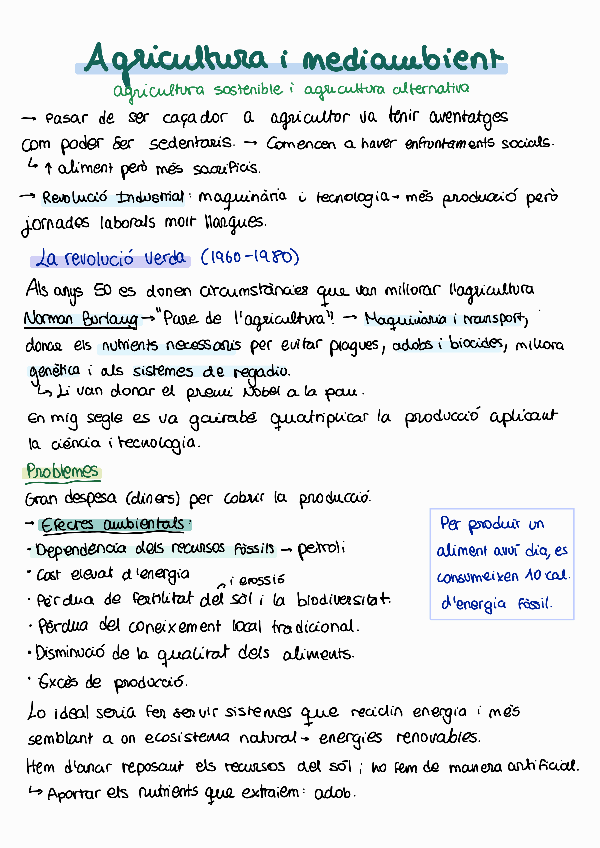 Agricultura i mediambient
agricultura sostenible i agricultura alternativa
→ Pasar de ser caçador a agricultor va tenir aventatges
com poder ser sedentaris. → Comencen a haver enfrontaments socials.
↳ ↑ aliment però més sacrificis.
→ Revolució Industrial: maquinària i tecnologia → més producció però
jornades laborals molt llargues.
La revolució verda (1960-1980)
Als anys 50 es donen circumstàncies que van millorar l'agricultura
Norman Borlaug → "Pare de l'agricultura"! → Maquinària i transport,
donar els nutrients necessaris per evitar plagues, adobs i biocides, millora
genètica i als sistemes de regadio.
↳ Li van donar el premi Nobel a la pau.
En mig segle es va gairabé quatriplicar la producció aplicant
la ciència i tecnologia.
Problemes
Gran despesa (diners) per cobrir la producció.
→ Efectes ambientals:
· Dependència dels recursos fòssils → petroli
· Cost elevat d'energia
· Pèrdua de fertilitat del sòl i erossió i la biodiversitat.
· Pèrdua del coneixement local tradicional.
· Disminució de la qualitat dels aliments.
· Excés de producció.
Per produir un
aliment avui dia, es
consumeixen 10 cal.
d'energia fòssil.
Lo ideal seria fer servir sistemes que reciclin energia i més
semblant a un ecosistema natural → energies renovables.
Hem d'anar reposant els recursos del sòl i no fem de manera artificial.
↳ Aportar els nutrients que extraiem: adob.